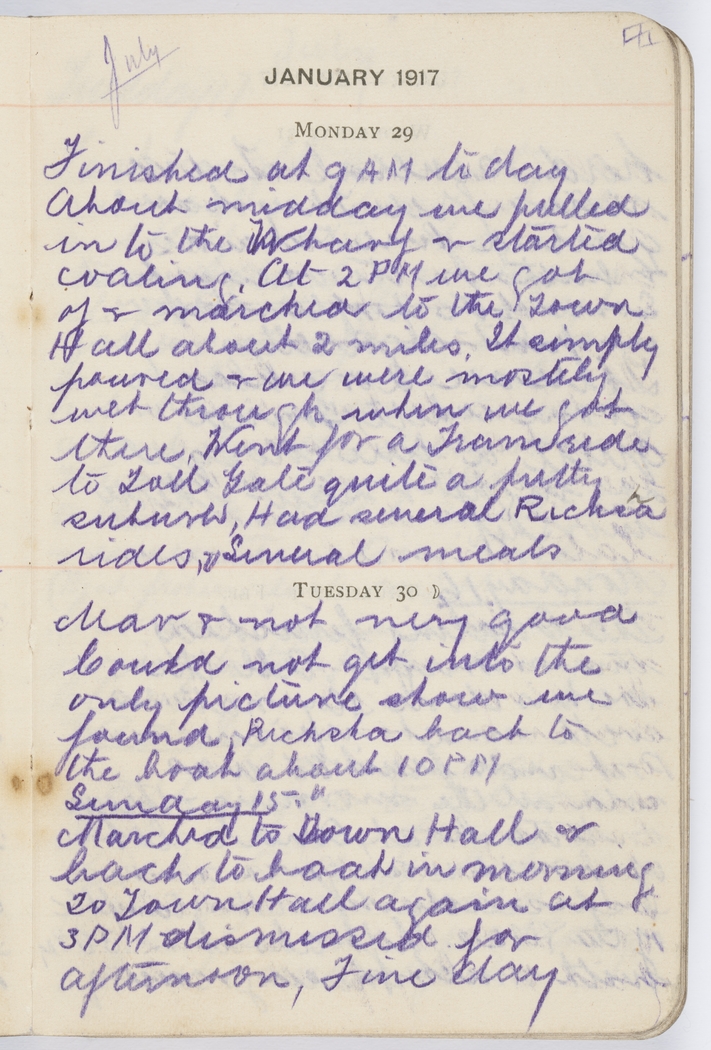 July
JANUARY 1917
MONDAY 29
Finished at 9 AM to day
About midday we pulled
in to the Wharf & started
coaling. At 2 PM we got
of & marched to the Town
Hall about 2 miles. It simply
poured & we were mostely
wet through when we got
there. Went for a Tram ride
to Toll Gate quite a pretty
suburb, Had several Ricksha
rides, & Several meals
TUESDAY 30
& not very good
Could not get into the
only picture show we
found, Ricksha back to
the boat about 10 PM
Sunday 15th
Marched to Town Hall &
back to boat in morning
To Town Hall again at
3 PM dismissed for
afternoon, Fine day